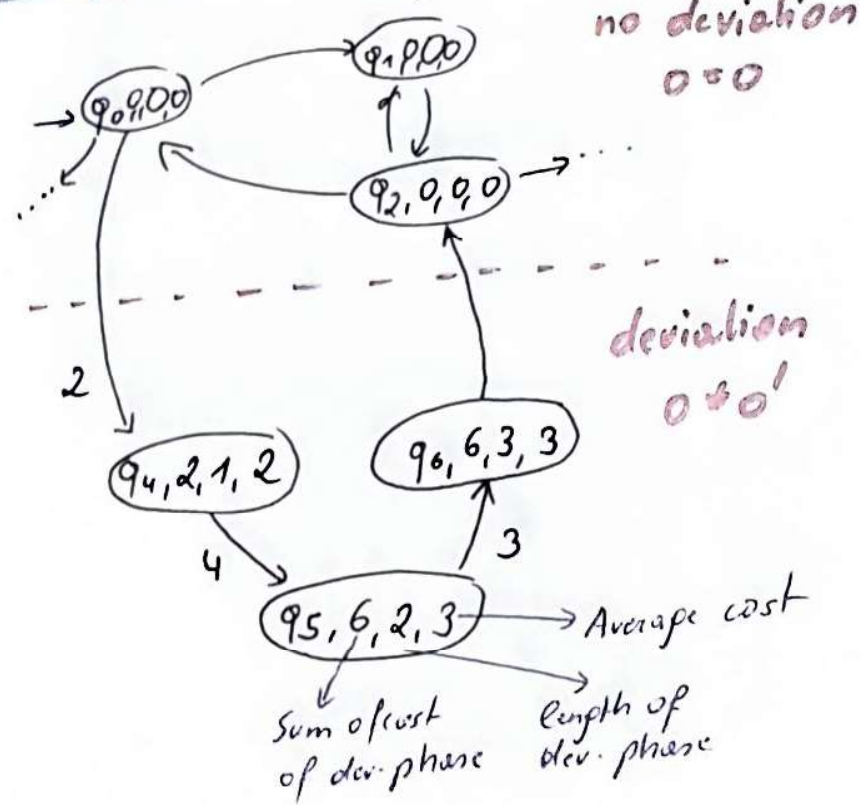 no deviation
0 = 0
q₁,0,0,0
q₀,0,0,0
q₂,0,0,0
....
.....
deviation
0 ≠ 0'
2
q₄, 2, 1, 2
q₆, 6, 3, 3
4
3
q₅, 6, 2, 3
Average cost
Sum of cost
of dev. phase
length of
dev. phase